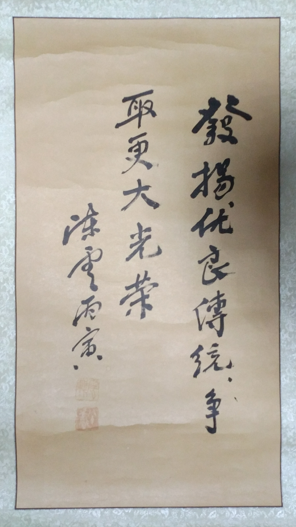 發揚优良傳統、争
取更大光荣
陈雲丙寅